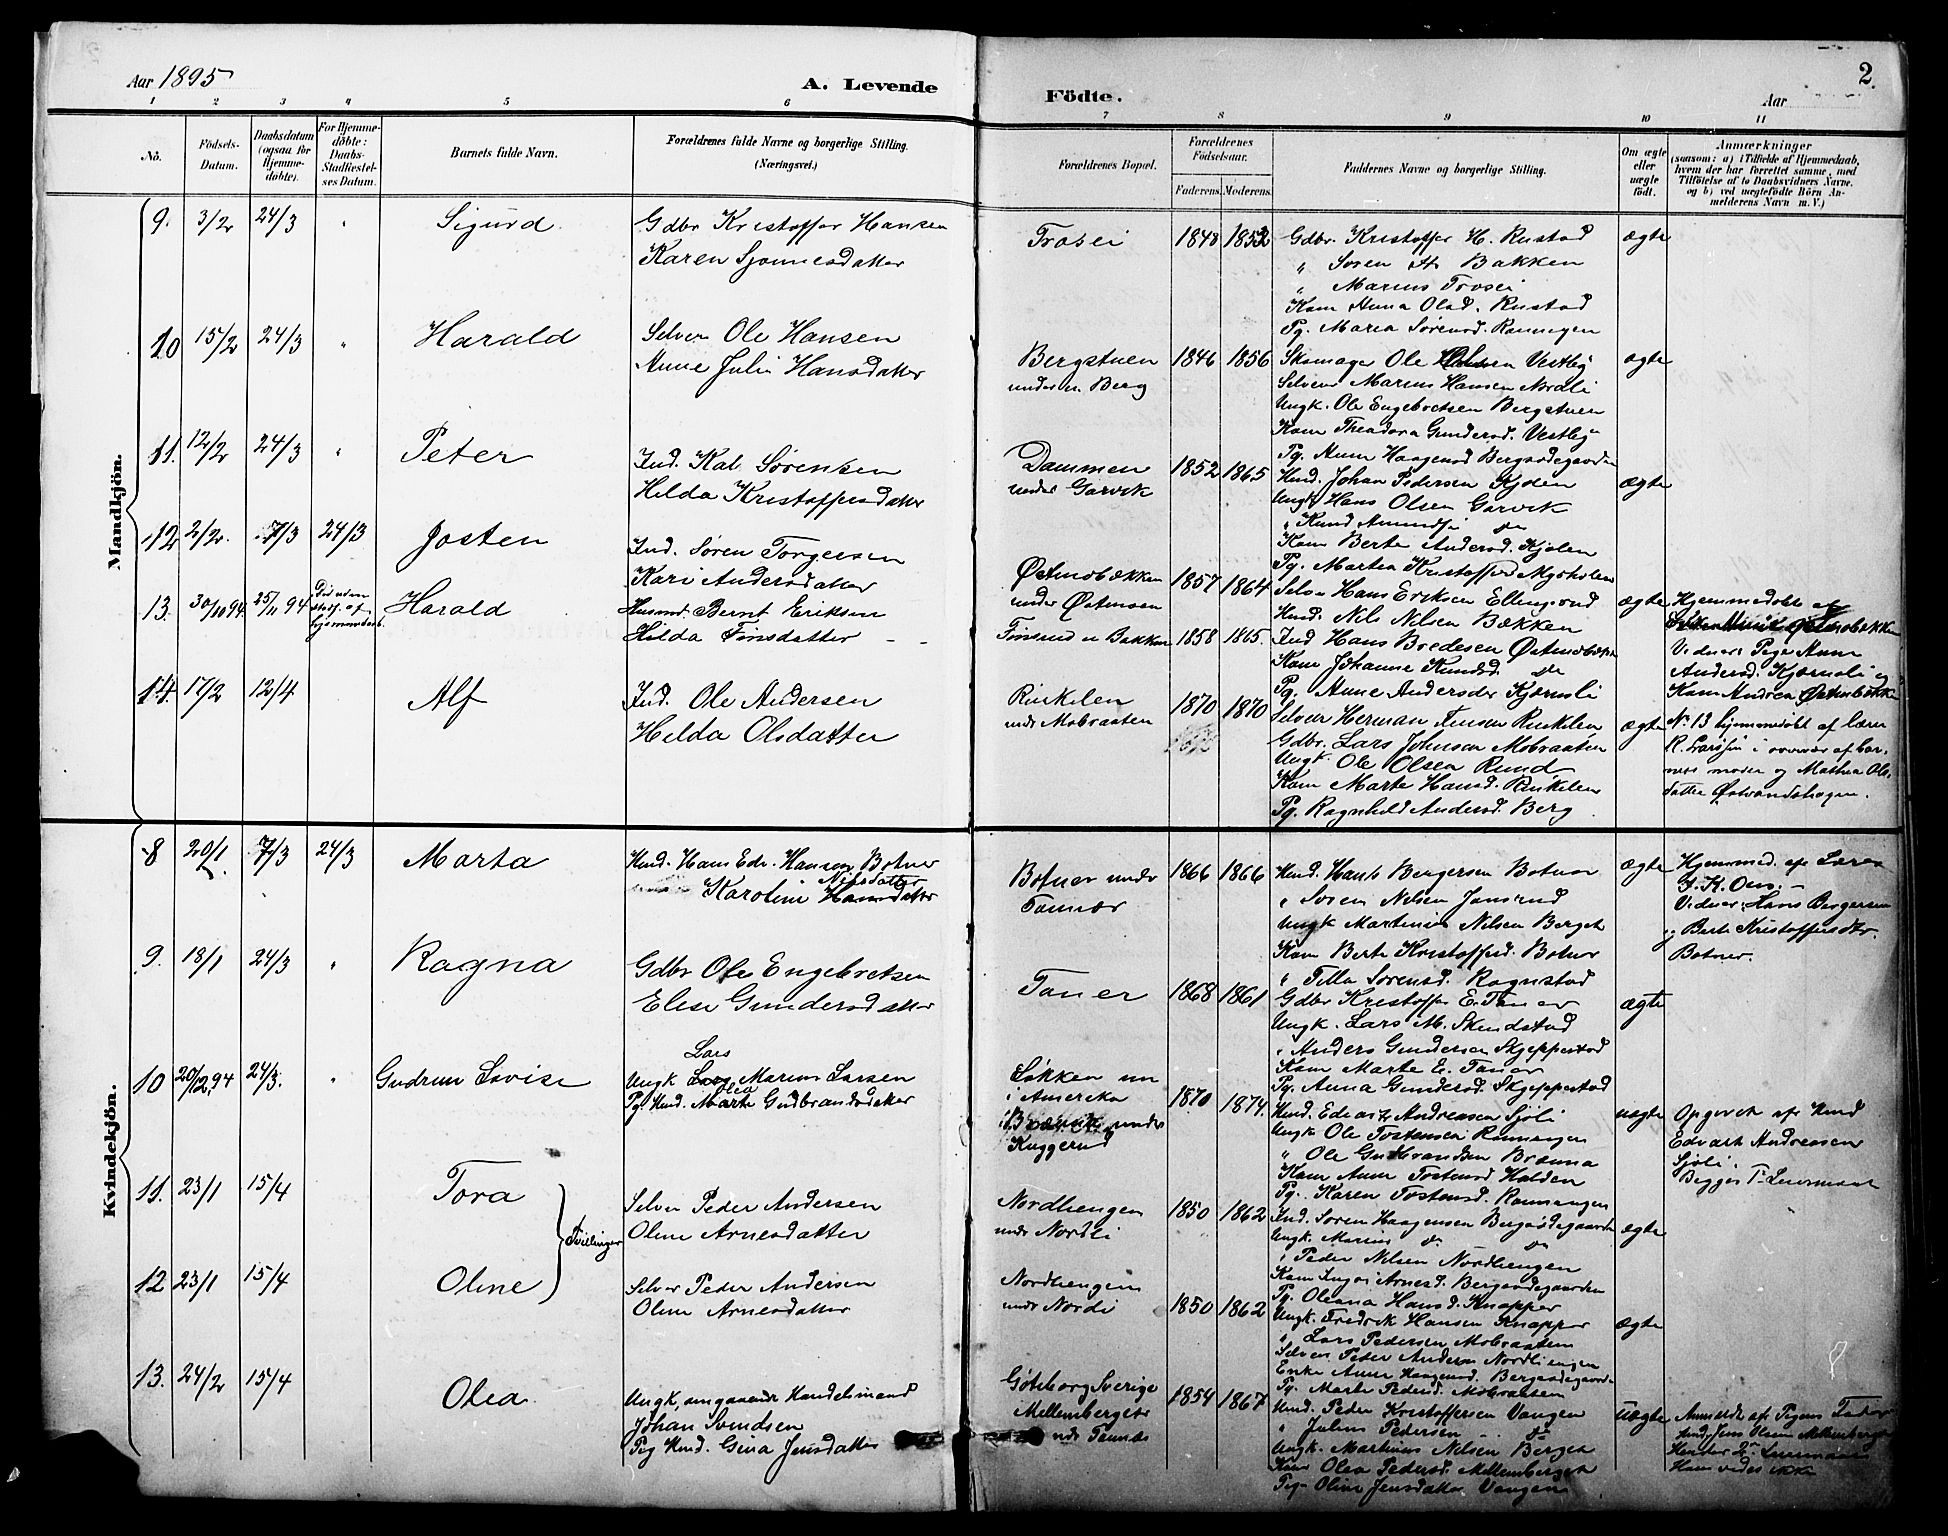 Aar 1895
A. Levende
Födte.
Aar
2
1 2 3 4 5 6 7 8 9 10 11
No.
Födsels-
Datum.
Daabsdatum
(ogsaa for
Hjemme-
döbte).
For Hjemme-
döbte:
Daabs-
Stadfæstel-
ses Datum.
Barnets fulde Navn.
Forældrenes fulde Navne og borgerlige Stilling.
(Næringsvei.)
Forældrenes Bopæl.
Forældrenes
Födselsaar.
Faderens. Moderens.
Faddernes Navne og borgerlige Stilling.
Om ægte
eller
uægte
födt.
Anmærkninger
(saasom: a) i Tilfælde af Hjemmedaab,
hvem der har forrettet samme, med
Tilföielse af to Daabsvidners Navne.
og b) ved uegtefödte Börn An-
melderens Navn m. V.)
Mandkjön.
9. 3/2 24/3 " Sigurd
Gdbr Kristoffer Hansen
Karen
Trosei
1848 1852
Gdbr. Kristoffer H. Rustad
" Søren H. Bakken
" Marius Trosei
Kone Anna Olsd. Rustad
Pg. Maria Sørensd. Ranningen
ægte
10 15/2 24/3 " Harald
Selveier Ole Hansen
Anne Julie Hansdatter
Bergstuen
under n. Berg
1846 1856
Skomager Ole Vestby
Selveier Marius Hansen Nordli
Ungk. Ole Engebretsen Bergstuen
Kone Theodora Gundersd. Vestby
Pg. Anne Haagensd Bergsødegaarden
ægte
11. 12/2 24/3 " Peter
Ind. Kal Sørensen
Hilda Kristoffersdatter
Dammen
under Garvik
1852 1865
Husmd. Johan Pedersen Kjølen
Ungk Hans Olsen Garvik
" Knud do
Kone Berte Andersd. Kjølen
Pg. Martea Kristoffersd
ægte
12 2/2. 7/3 24/3 Josten
Ind. Søren Torgersen
Kari Andersdatter
Østmobækken
under Østmoen
1857 1864
Selveier Hans Eriksen Ellingsrud
Husmd. Nils Nilsen Bækken
Ind Hans Bredesen Østmobækken
Kone Johanne Knudsd do
Pg. Anne Andersdtr Kjærnsli
ægte
Hjemmedøbt af
Østmobækken
Vidner: Pige Anne
Andersd. Kjærnsli og
Kone Andrea Østmobækken
13. 30/10 94. 25/11 94 Harald
Husmd Bernt Eriksen
Hilda Finsdatter
Finsrud n Bakken
1858 1865.
N. 13 hjemmedøbt af lærer
R. Larssen i overvær af bar-
nets moder og Mathea Ols-
datter Østvandshagen.
14. 17/2 12/4 Alf
Ind. Ole Andersen
Hilda Olsdatter
Rukelen
under Mobraaten
1870 1870
Selveier Herman Jensen Rukelen
Gdbr. Lars Johnsen Mobraaten
Ungk. Ole Olsen Rund
Kone Marte Hansd. Rukelen
Pg. Ragnhild Andersd. Berg
ægte
Kvindekjön.
8 20/1 7/3 24/3 Marta
Husmd. Hans Edv. Hansen Botner
Karoline Nilsdatter Hansdatter
Botner under
Tannær
1866 1866
Husmd. Hans Bergersen Botner
" Søren Nilsen Jonsrud
Ungk Martinius Nilsen Berget
Kone Berte Kristoffersd. Botner
" Tilla Sørensd. Rognstad
ægte
Hjemmed. af Lærer
J. K. Ous.
Vidner: Hans Bergersen
og Berte Kristoffersdtr.
Botner.
9. 18/1 24/3 " Ragna
Gdbr Ole Engebretsen
Elise Gundersdatter
Taner
1868 1861
Gdbr Kristoffer E. Taner
Ungk. Lars M. Skundstad
" Anders Gundersen Skjeppestad
Kone Marte E. Taner
Pg. Anna Gundersd. Skjeppestad
ægte
10 20/12 94 24/3. " Gudrun Lovise
Ungk Lars Marius Larsen
Pg. Husmd. Marte Olea Gudbrandsdatter
Løkken nu
i Amerika
under
Kuggerud
1870 1874.
Husmd. Edvart Andreassen Sjøli
Ungk Ole Tostensen Ranningen
" Ole Gudbrandsen Brænna
Kone Anne Tostensd Holden
Pg. Karen Tostensd. Ranningen
uægte
Opgivet af Husmd
Edvart Andreassen
Sjøli.
Begges 1ste Leiermaal
11. 23/1 15/4 Tora
Tvillinger
Selveier Peder Andersen
Oline Arnesdatter
Nordhengen
under Nordli
1850 1862
Ind. Søren Haagensen Bergsødegaarden
Ungk. Marius do do
" Peder Nilsen Nordhengen
Kone Inger Arnesd. Bergsødegaarden
Pg. Oleana Hansd. Knapper
ægte
12 23/1 15/4 Oline
Selveier Peder Andersen
Oline Arnesdatter
Nordhengen
under Nordli
1850 1862
Ungk. Fredrik Hansen Knapper
" Lars Pedersen Mobraaten
Selveier Peder Andersen Nordhengen
Enke Anne Haagensd. Bergsødegaarden
Pg. Marte Pedersd. Mobraaten
ægte
13. 24/2 15/4 Olea
Ungk, omgaaende Handelsmand
Johan Svendsen
Pig Husmd. Gina Jensdatter
Gøteborg Sverige
Mellemberget
under Tannæs
1854 1867
Husmd. Peder Kristoffersen Vangen
" Julius Pedersen do
Ungk. Martinius Nilsen Berget
Kone Olea Pedersd. Mellemberget
Pg. Oline Jensdatter Vangen
uægte
Anmeldt af Pigens Fader
Husmd. Jens Olsen Mellemberget
Hendes 2det Leiermaal
Hans vides ikke